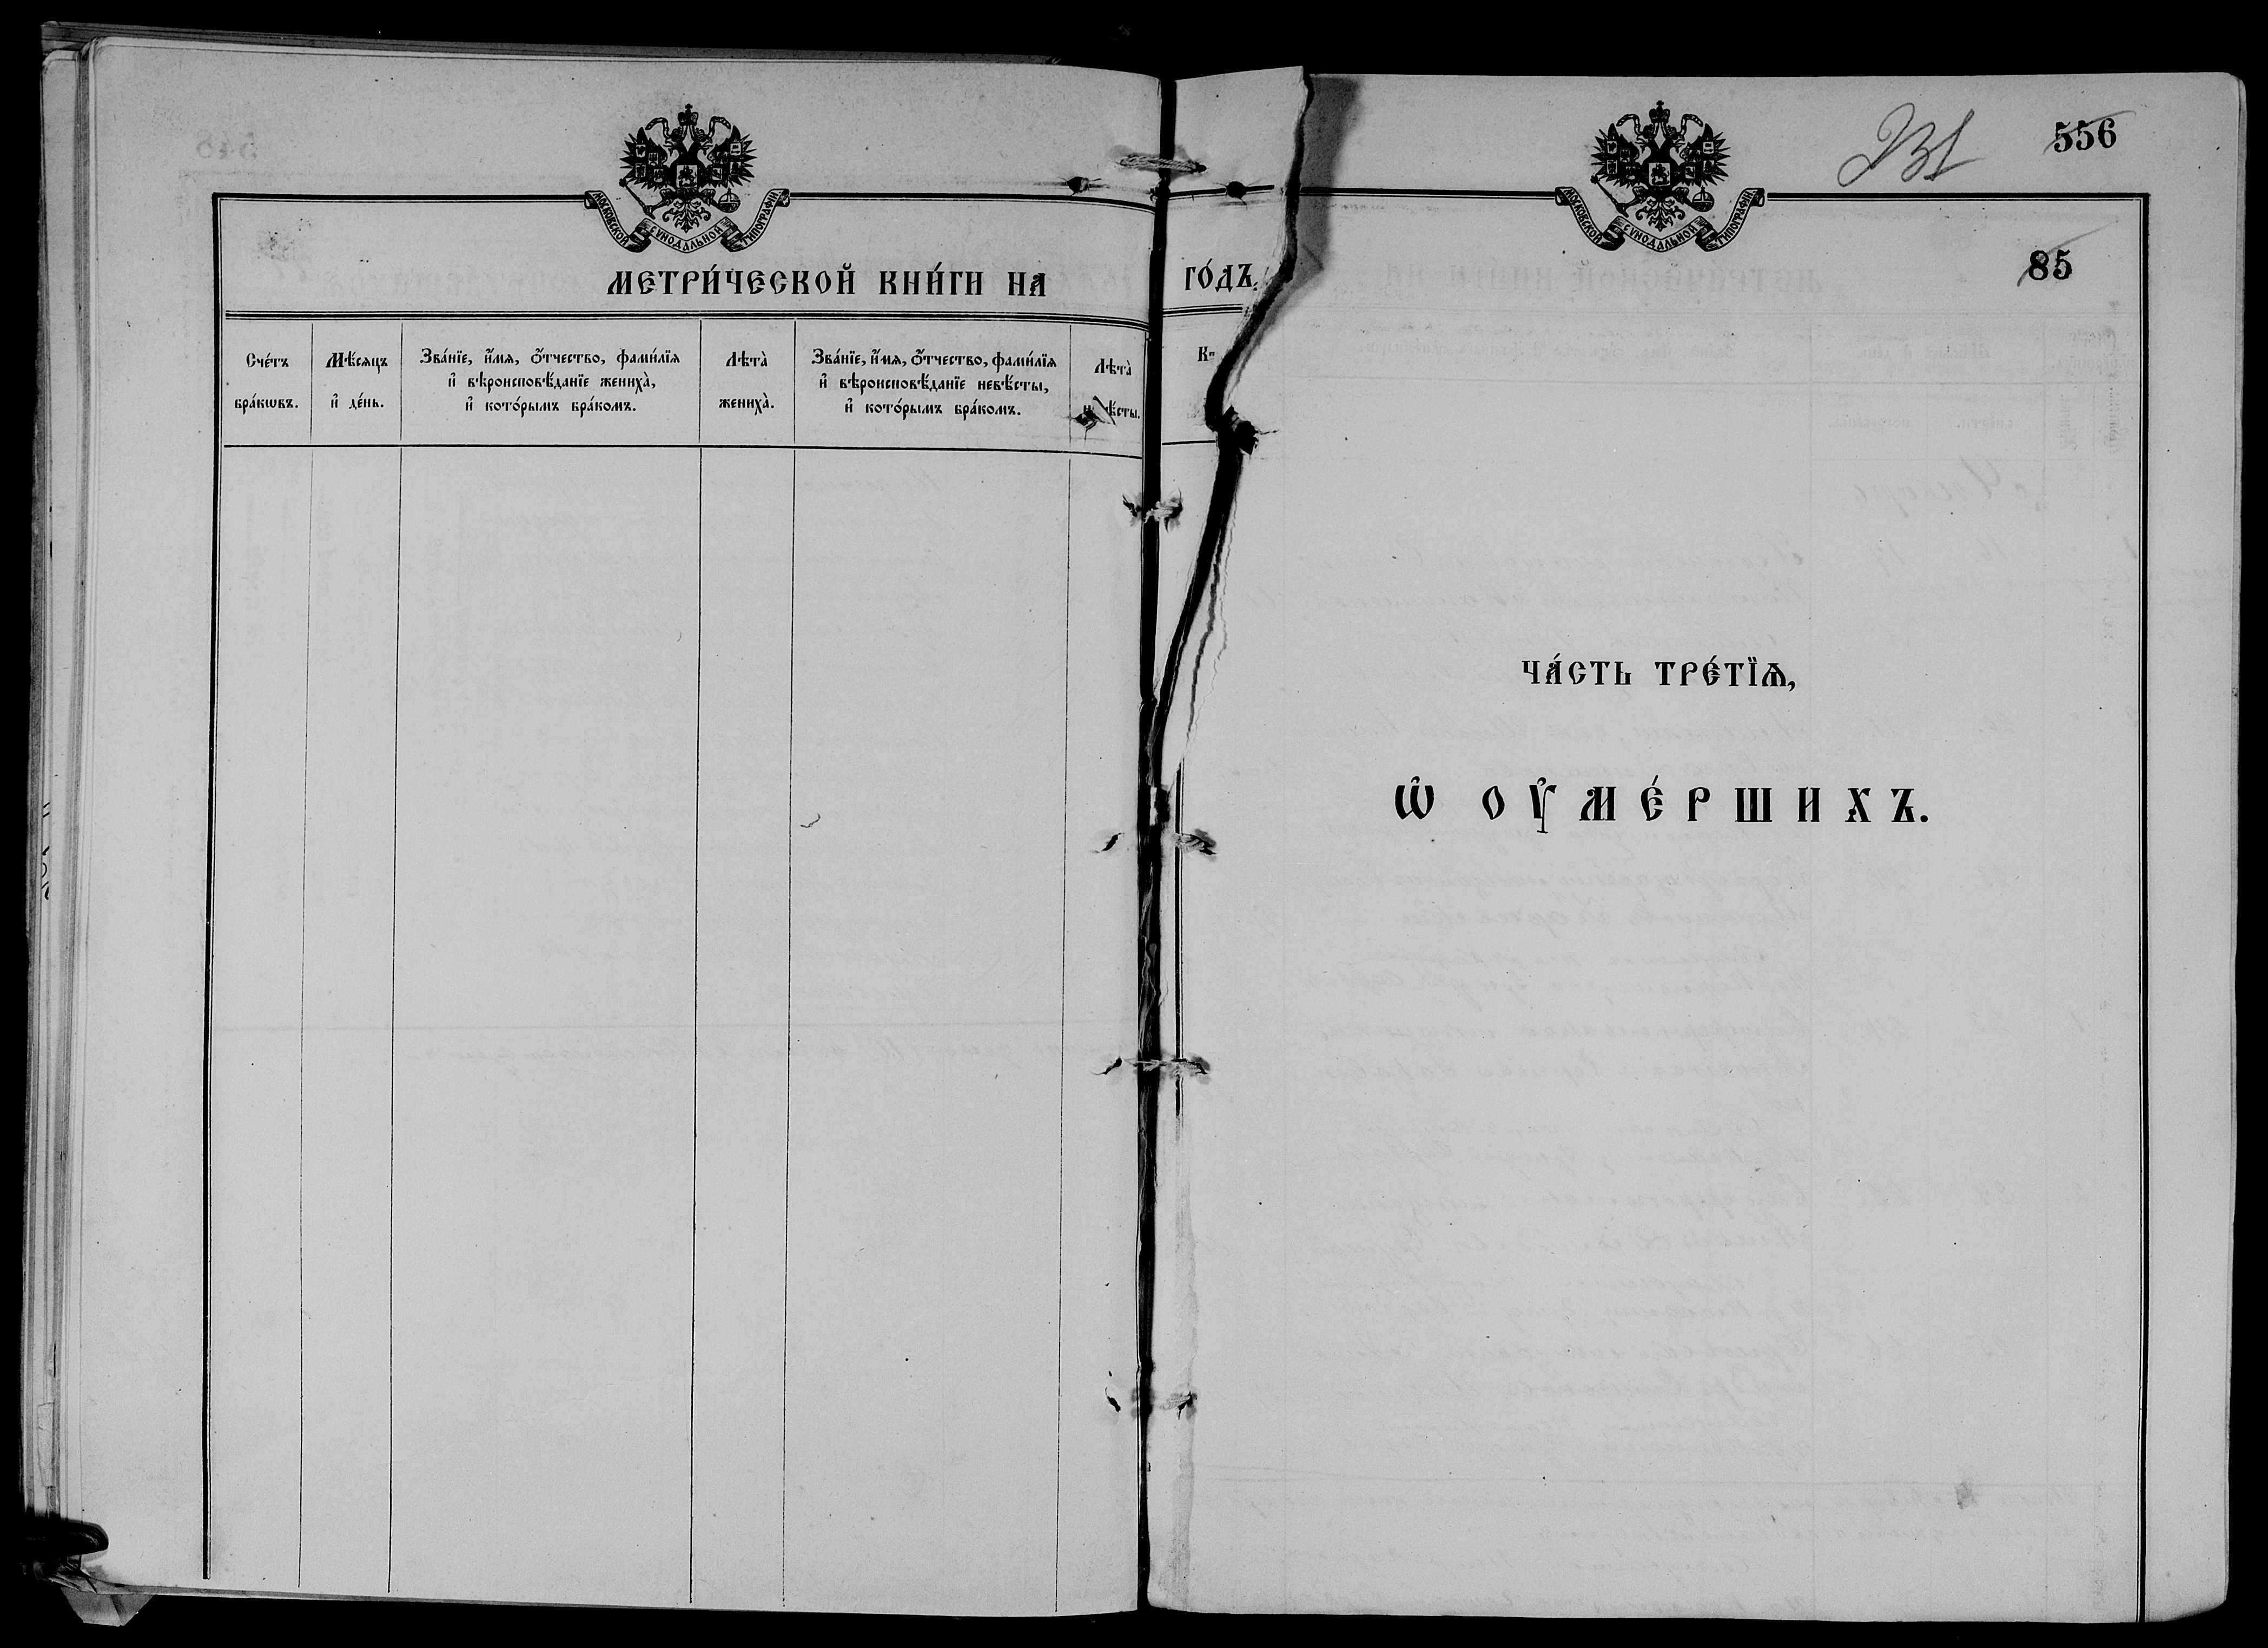 МОСКОВСКОЙ СѴНОДАЛЬНОЙ ТИПОГРАФІИ
МЕТРИ́ЧЕСКОЙ КНИ́ГИ НА
Сче́тъ бра́кѡвъ.
Мѣ́сяцъ и҆ де́нь.
Зва́нїе, и҆́мя, ѻ҆́тчество, фами́лїя
и҆ вѣроисповѣ́данїе жениха̀,
и҆ кото́рымъ бра́комъ.
Лѣта̀
жениха̀.
Зва́нїе, и҆́мя, ѻ҆́тчество, фами́лїя
и҆ вѣроисповѣ́данїе невѣ́сты,
и҆ кото́рымъ бра́комъ.
Лѣта̀
ГО́ДЪ.
МОСКОВСКОЙ СѴНОДАЛЬНОЙ ТИПОГРАФІИ
231
556
85
ЧА́СТЬ ТРЕ́ТЇѦ,
Ѡ҆ ОУ҆МЕ́РШИХЪ.